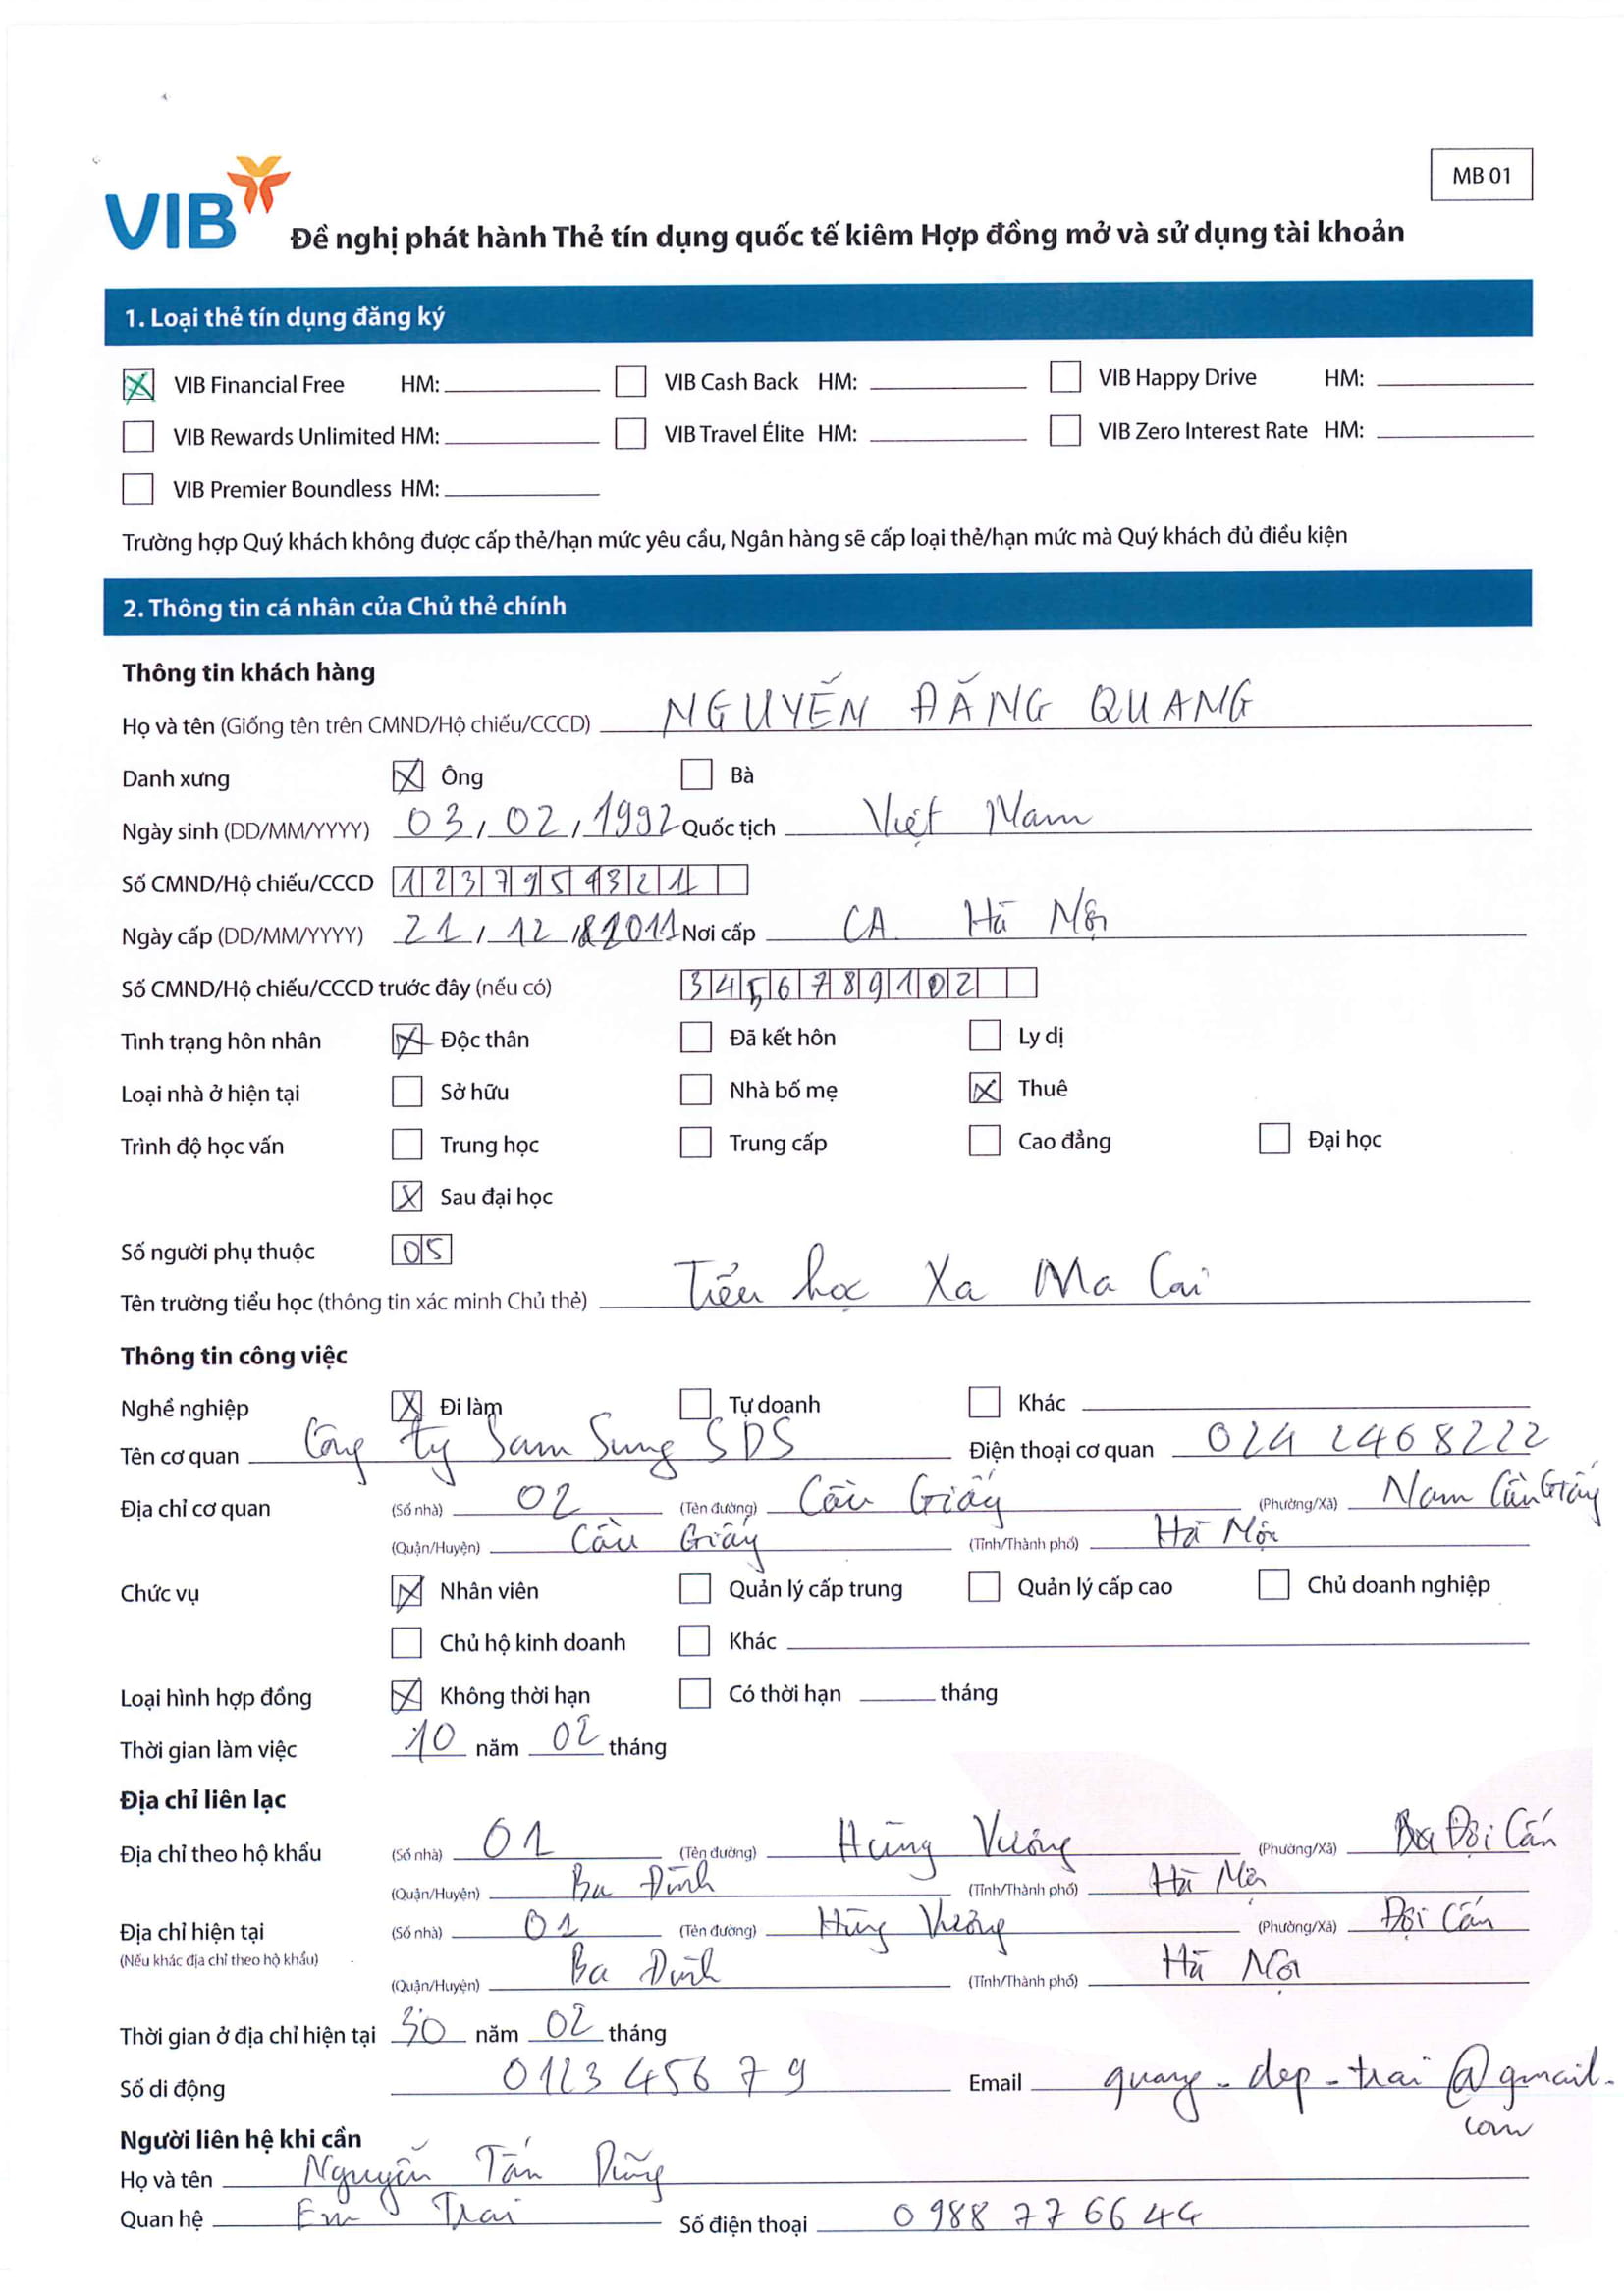 MB 01
VIB
Đề nghị phát hành Thẻ tín dụng quốc tế kiêm Hợp đồng mở và sử dụng tài khoản
1. Loại thẻ tín dụng đăng ký
VIB Financial Free HM: VIB Cash Back HM: VIB Happy Drive HM:
VIB Rewards Unlimited HM: VIB Travel Élite HM: VIB Zero Interest Rate HM:
VIB Premier Boundless HM:
Trường hợp Quý khách không được cấp thẻ/hạn mức yêu cầu, Ngân hàng sẽ cấp loại thẻ/hạn mức mà Quý khách đủ điều kiện
2. Thông tin cá nhân của Chủ thẻ chính
Thông tin khách hàng
Họ và tên (Giống tên trên CMND/Hộ chiếu/CCCD) NGUYỄN ĐĂNG QUANG
Danh xưng Ông Bà
Ngày sinh (DD/MM/YYYY) 03, 02, 1992 Quốc tịch Việt Nam
Số CMND/Hộ chiếu/CCCD 1237954321
Ngày cấp (DD/MM/YYYY) 21, 12, 2011 Nơi cấp CA Hà Nội
Số CMND/Hộ chiếu/CCCD trước đây (nếu có) 3456789102
Tình trạng hôn nhân Độc thân Đã kết hôn Ly dị
Loại nhà ở hiện tại Sở hữu Nhà bố mẹ Thuê
Trình độ học vấn Trung học Trung cấp Cao đẳng Đại học
Sau đại học
Số người phụ thuộc 05
Tên trường tiểu học (thông tin xác minh Chủ thẻ) Tiểu học Xa Ma Cai
Thông tin công việc
Nghề nghiệp Đi làm Tự doanh Khác
Tên cơ quan Công ty Sam Sung SDS Điện thoại cơ quan 024 2468222
Địa chỉ cơ quan (Số nhà) 02 (Tên đường) Cầu Giấy (Phường/Xã) Nam Cầu Giấy
(Quận/Huyện) Cầu Giấy (Tỉnh/Thành phố) Hà Nội
Chức vụ Nhân viên Quản lý cấp trung Quản lý cấp cao Chủ doanh nghiệp
Chủ hộ kinh doanh Khác
Loại hình hợp đồng Không thời hạn Có thời hạn tháng
Thời gian làm việc 10 năm 02 tháng
Địa chỉ liên lạc
Địa chỉ theo hộ khẩu (Số nhà) 01 (Tên đường) Hùng Vương (Phường/Xã) Đội Cấn
(Quận/Huyện) Ba Đình (Tỉnh/Thành phố) Hà Nội
Địa chỉ hiện tại (Số nhà) 01 (Tên đường) Hùng Vương (Phường/Xã) Đội Cấn
(Nếu khác địa chỉ theo hộ khẩu)
(Quận/Huyện) Ba Đình (Tỉnh/Thành phố) Hà Nội
Thời gian ở địa chỉ hiện tại 30 năm 02 tháng
Số di động 0123 456 79 Email quang_dep_trai@gmail.
com
Người liên hệ khi cần
Họ và tên Nguyễn Tấn Dũng
Quan hệ Em Trai Số điện thoại 0988 77 66 44